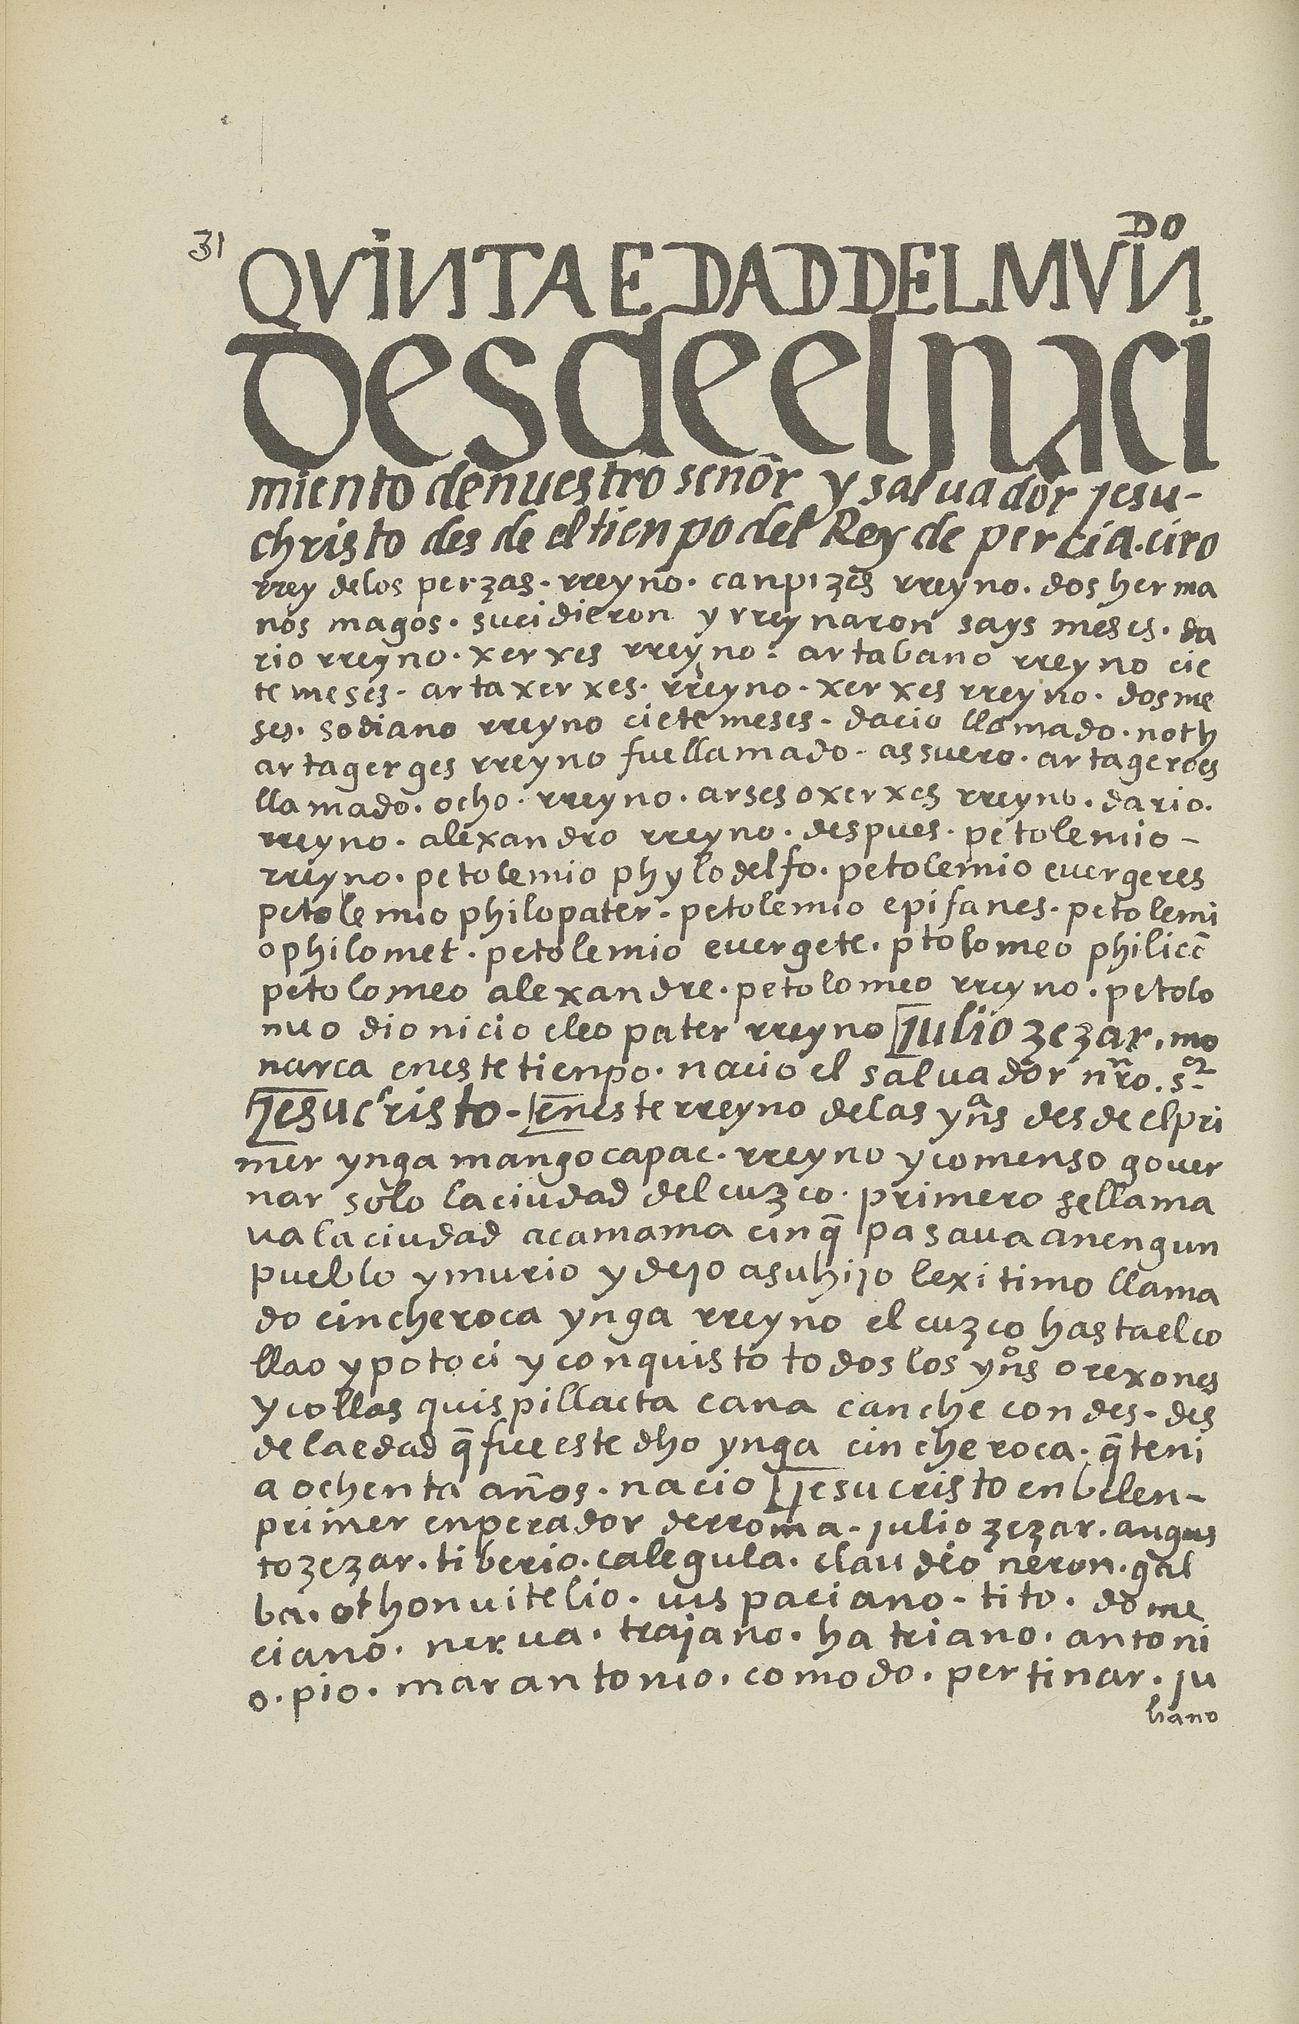 31
QVINTA EDAD DEL MVNDO
Desde el naci
miento de nuestro señor y saluador jesu-
christo des de el tienpo del Rey de percia. ciro
rrey de los perzas. rreyno. canpizes rreyno. dos herma
nos magos. sucidieron y rreynaron says meses. da
rio rreyno. xerxes rreyno. artabano rreyno cie
te meses. artaxerxes. rreyno. xerxes rreyno. dos me
ses. sodiano rreyno ciete meses. dacio llamado. noth
artagerges rreyno fue llamado. assuero. artageroes
llamado. ocho. rreyno. arses o xerxes rreyno. dario.
rreyno. alexandro rreyno. despues. petolemio-
rreyno. petolemio phylodelfo. petolemio euergeres
petolemio philopater. petolemio epifanes. petolemi
o philomet. petolemio euergete. ptolomeo philicc̄
petolomeo alexandre. petolomeo rreyno. petolo
mio dionicio cleopater rreyno Julio zezar. mo
narca en este tienpo. nacio el saluador nr̃o. sor
Jesucristo. En este rreyno de las yñs desde el pri
mer ynga mangocapac. rreyno y comenso gouer
nar solo la ciudad del cuzco. primero se llama
ua la ciudad acamama cin q̃ pasaua a nengun
pueblo y murio y dejo a su hijo lexitimo llama
do cincheroca ynga rreyno el cuzco hasta el co
llao y potoci y conquisto todos los yños orexones
y collas quispillacta cana canche condes. des
de la edad q̃ fue este dho ynga cincheroca. q̃ teni
a ochenta años. nacio Jesucristo en belen-
primer enperador de rroma. julio zezar. augus
to zezar. tiberio. calegula. claudio neron. gal
ba. othon uitelio. uispaciano. tito. dome
ciano. nerua. trajano. hatriano. antoni
o. pio. marantonio. comodo. pertinar. ju
liano